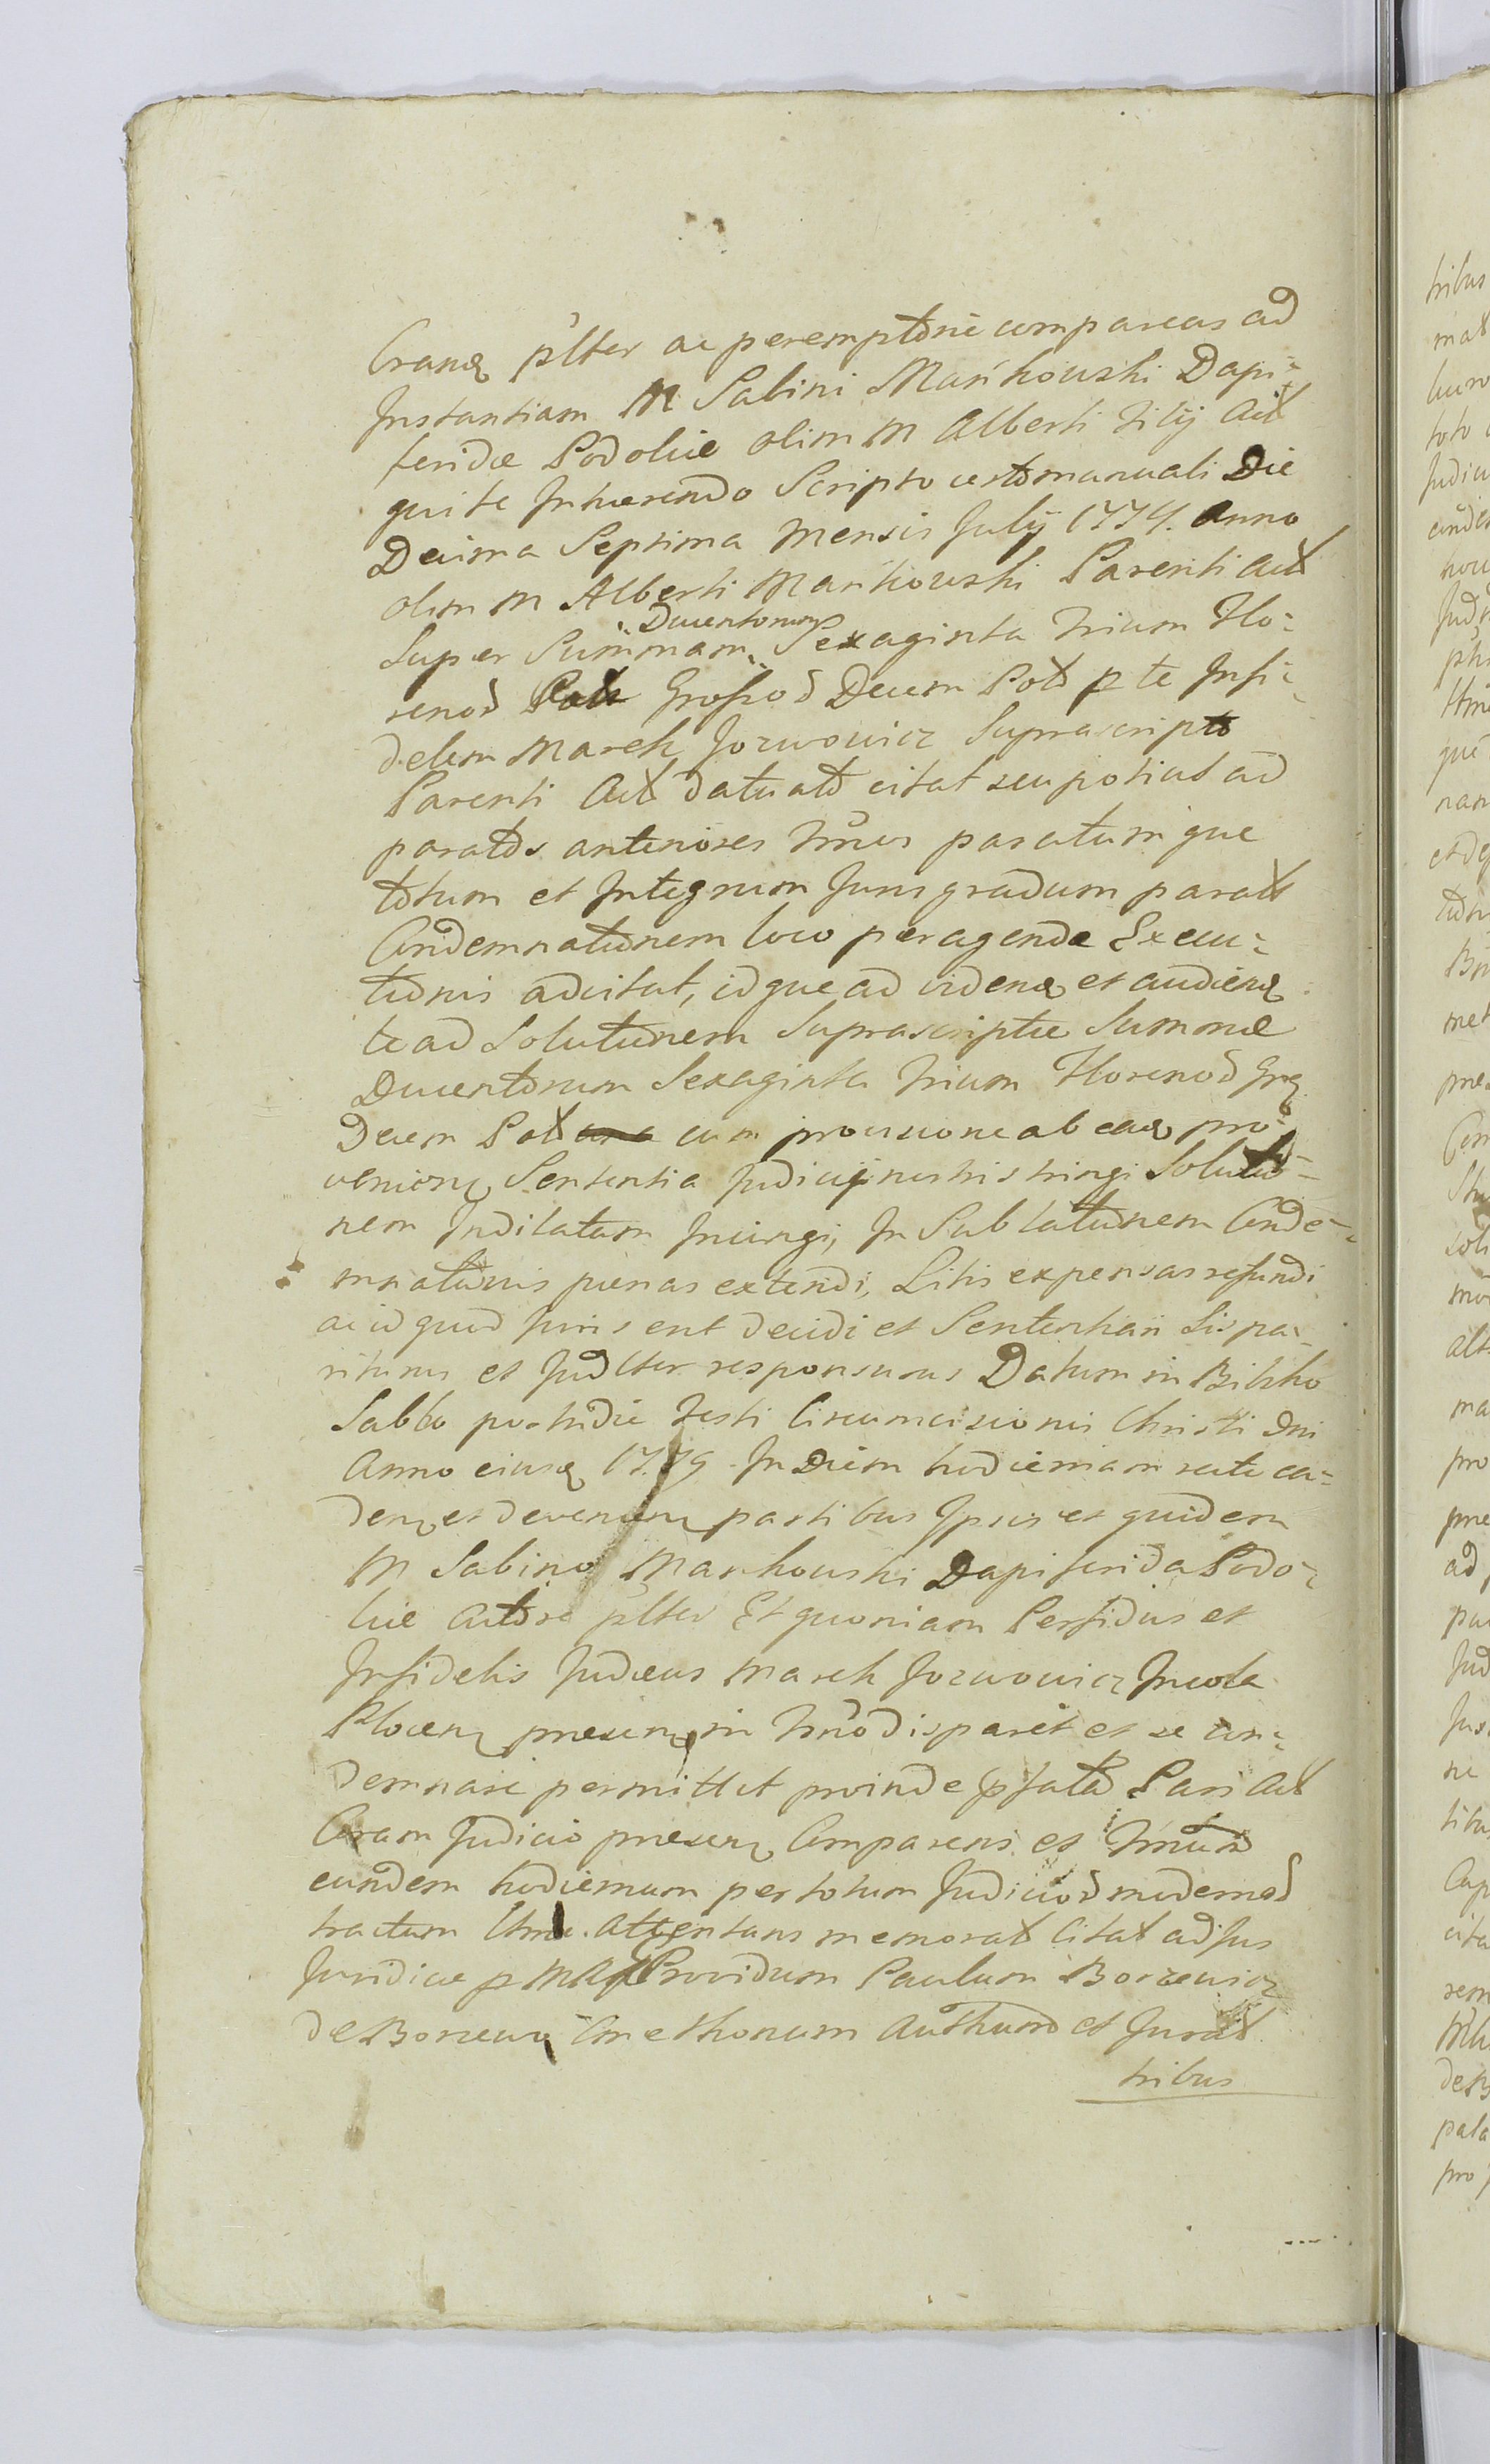 Coramq plter ac peremptorie compareas ad
Instantiam M Sabini Mańkowski Dapi-
feridæ Podoliæ olim M Alberti Filij Act
qui te Inhærendo Scripto certo manuali Die
Decima Septima Mensis Julij 1774. Anno
olim M Alberti Mańkowski Parenti Act
Super Summam Ducentorum Sexaginta Trium Flo-
renod Grossod Decem Pol p te Infi-
delem Marek Jozwowicz Suprascripto
Parenti Act dato citat seu potius ad
paratos anteriores tnos paratumque
totum et Integrum Juris gradum parat
Condemnationem loco peragendæ Execu-
tionis adcitat, idque ad videnq et audienq
te ad Solutionem Suprascriptæ Summæ
Ducentorum Sexaginta Trium Florenod Grq
Decem Pol cum provisione ab eaq pro-
venienq Sententia Judicij nostri stringi Solutio-
nem Indilatam Iniungi, In Sublationem Conde-
mnationis pænas extendi, Litis expensas refundi
ac id quod juris erit decidi et Sententiari Sis pa-
riturus et Judlter responsurus Datum in Bilsko
Sabbo postridie Festi Circumcisionis Christi Dni
Anno eiusq 1779. In Diem hodiernam recte ca-
denq et devenienq partibus Ipsis et quidem
M Sabino Mankowski Dapiferida Podo-
liæ Actore plter Et quoniam Perfidus et
Infidelis Judæus Marek Jozwowicz Incola
Plocenq presenq in tno disparet et se con-
demnari permittit proinde pfata Pars Act
Coram Judicio presenq Comparens et Tnum
eundem hodiernum per totum Judiciod modernod
tractum Attentans memorat Citat ad Jus
Juridice p Providum Paulum Borzewicz
de Borzewo Cmethonum Authum et Jurat
tribus